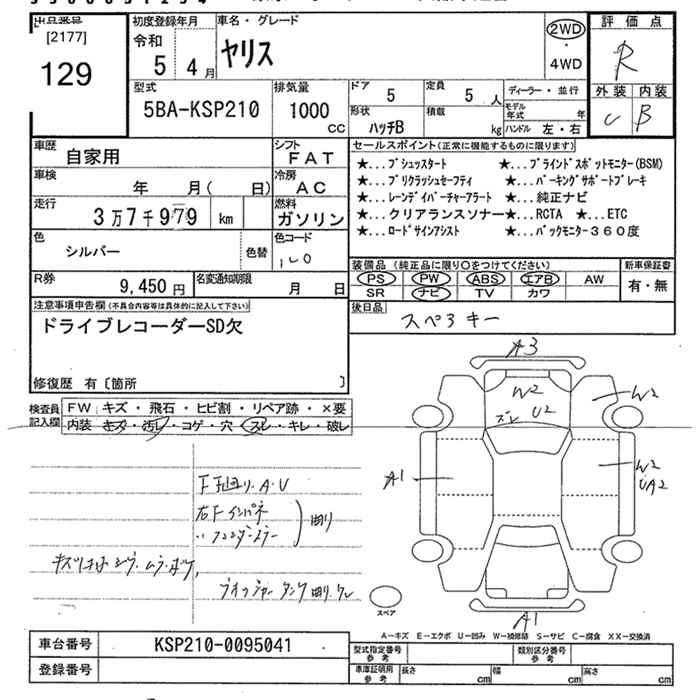 出品番号
[2177]
129
初度登録年月
令和
5年 4月
車名・グレード
ヤリス
2WD
・
4WD
評価点
R
外装 内装
C B
型式
5BA-KSP210
排気量
1000
CC
ドア
5
定員
5 人
ディーラー・並行
形状
ハッチB
積載
kg
モデル年式 年
ハンドル 左・右
車歴
自家用
シフト
FAT
車検
年 月( 日)
冷房
AC
走行
3万7千979 km
燃料
ガソリン
色
シルバー
色替
色コード
1L0
R券
9,450 円
名変通知期限
月 日
セールスポイント(正常に機能するものに限ります)
★...プッシュスタート ★...ブラインドスポットモニター(BSM)
★...プリクラッシュセーフティ ★...パーキングサポートブレーキ
★...レーンディパーチャーアラート ★...純正ナビ
★...クリアランスソナー★...RCTA ★...ETC
★...ロードサインアシスト ★...パックモニター360度
装備品(純正品に限り○をつけてください)
PS PW ABS エアB AW
SR ナビ TV カワ
新車保証書
有・無
後日品
スペアキー
注意事項申告欄(不具合内容等は具体的に記入して下さい)
ドライブレコーダーSD欠
修復歴 有〔箇所 〕
検査員
記入欄
FW キズ・飛石・ヒビ割・リペア跡・×要
内装 キズ・汚レ・コゲ・穴・スレ・キレ・破レ
F下廻り・A・U
右Fインパネ
〃フェンダーステー
凹
A3
W2
ズレ U2
W2
A1
W2
UA2
A1
スペア
A-キズ E-エクボ U-凹み W-補修跡 S-サビ C-腐食 XX-交換済
車台番号
KSP210-0095041
登録番号
型式指定番号
参考
類別区分番号
参考
車庫証明用
参考
長さ cm 幅 cm 高さ cm